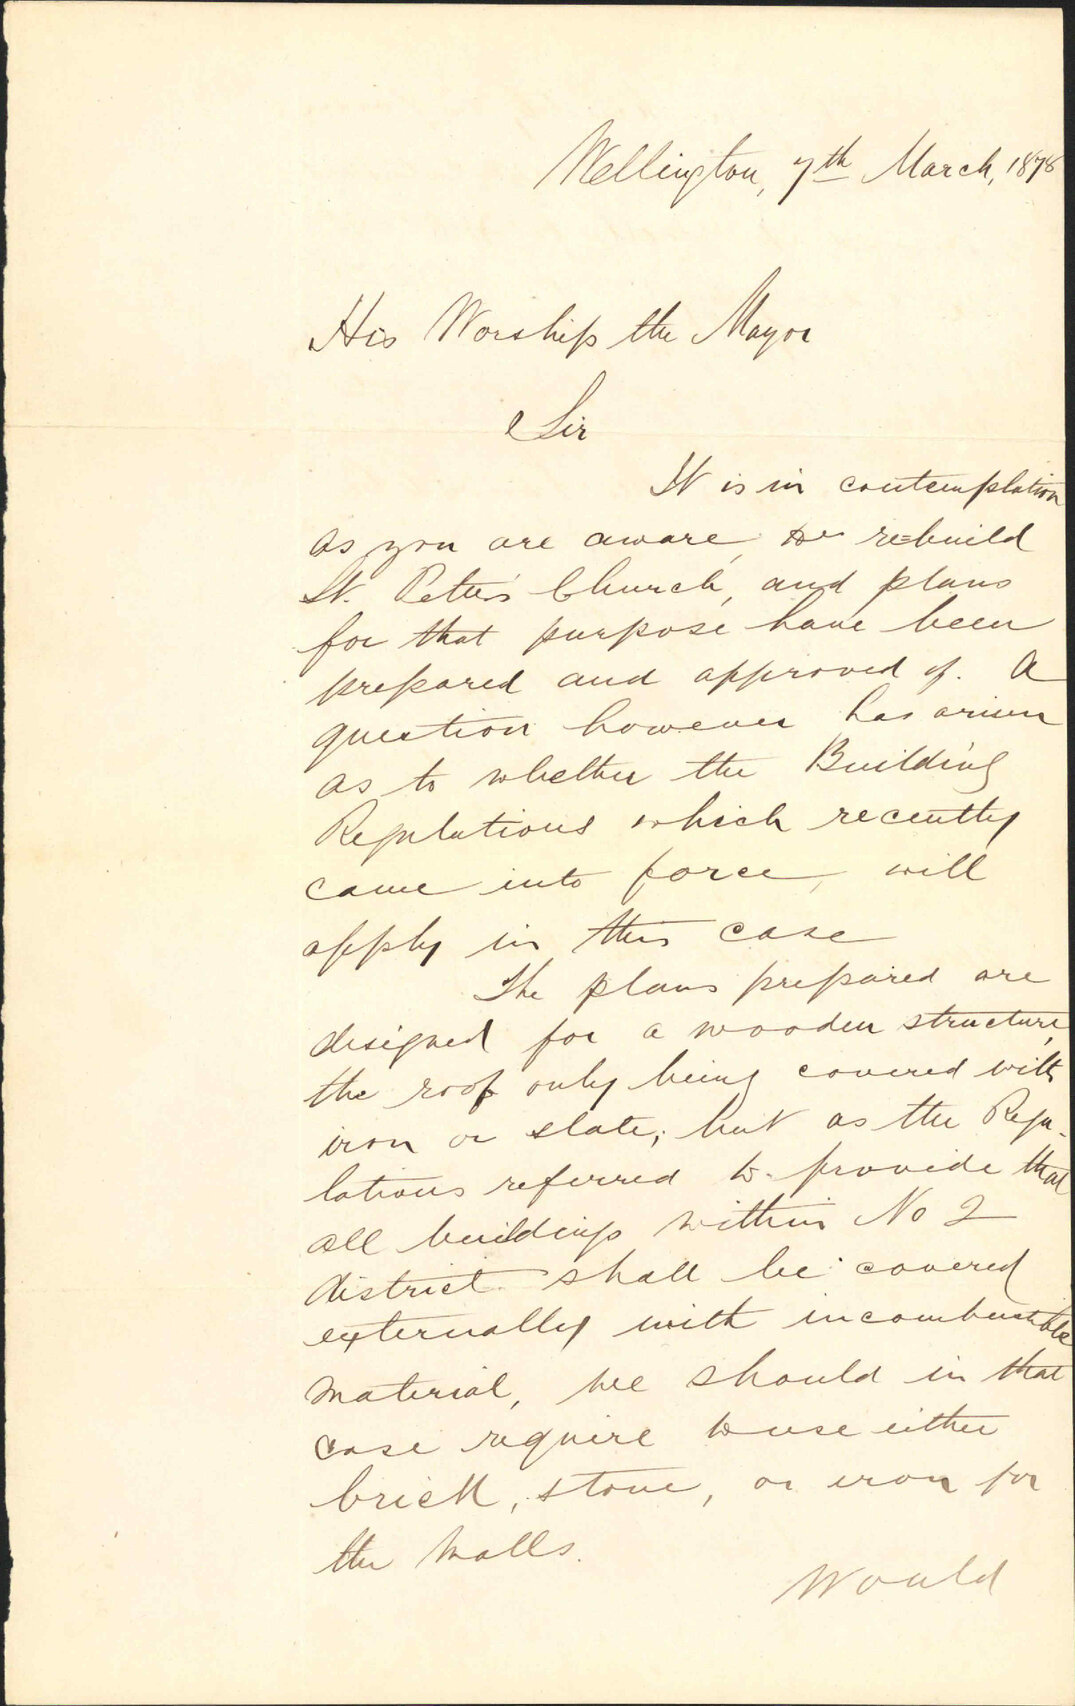 Wellington, 7th March, 1878
His Worship the Mayor
Sir
It is in contemplation
as you are aware, to re-build
St. Peter's Church, and plans
for that purpose have been
prepared and approved of. A
question however has arisen
as to whether the Building
Regulations which recently
came into force, will
apply in this case
The plans prepared are
designed for a wooden structure,
the roof only being covered with
iron or slate; but as the Regu-
lations referred to provide that
all buildings within No 2
district shall be covered
externally with incombustible
material, we should in that
case require to use either
brick, stone, or iron for
the walls.
Would